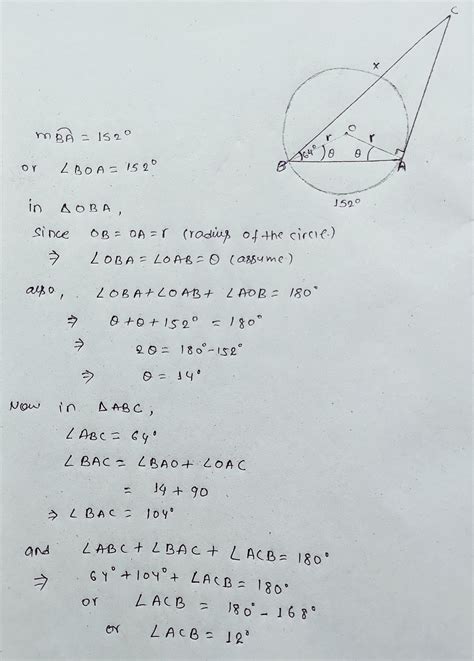 C
x
O
r
r
64°
θ
θ
B
A
152°
mBA = 152°
or ∠BOA = 152°
in ΔOBA,
since OB = OA = r (radius of the circle)
⇒ ∠OBA = ∠OAB = θ (assume)
also, ∠OBA + ∠OAB + ∠AOB = 180°
⇒ θ + θ + 152° = 180°
⇒ 2θ = 180° - 152°
⇒ θ = 14°
Now in ΔABC,
∠ABC = 64°
∠BAC = ∠BAO + ∠OAC
= 14 + 90
⇒ ∠BAC = 104°
and ∠ABC + ∠BAC + ∠ACB = 180°
⇒ 64° + 104° + ∠ACB = 180°
or ∠ACB = 180° - 168°
or ∠ACB = 12°